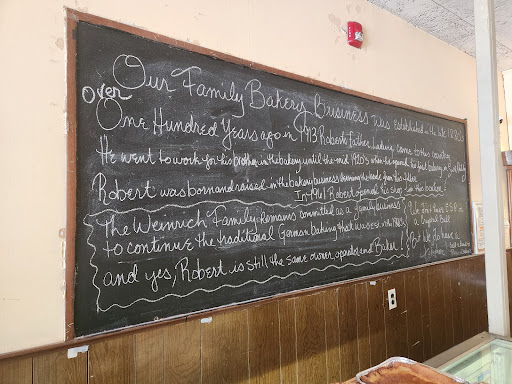 Our Family Bakery Business was established in the late 1880's
over
One Hundred Years ago in 1913 Robert's father, Ludwig came to this country
He went to work for his brother in the bakery until the mid 1920's when he opened his first bakery in
Robert was born and raised in the bakery business learning the trade from his father
In 1961 Robert opened his own
bakery!
The Weinrich Family Remains committed as a family business
to continue the traditional German baking that was used in the 1880's
and yes, Robert is still the same owner, operator and Baker!
We don't have
a
But We do have a